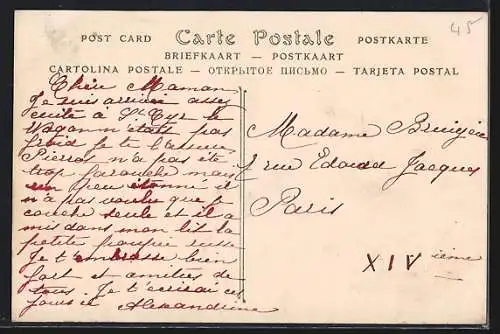 45
POST CARD Carte Postale POSTKARTE
BRIEFKAART — POSTKAART
CARTOLINA POSTALE — ОТКРЫТОЕ ПИСЬМО — TARJETA POSTAL
Chère Maman
Je suis arrivée assez
à St Cyr le
Wagon n'était pas
froid je te l'assure
Pierrot n'a pas été
trop farouche mais
un peu étonné il
n'a pas voulu que je
couche seule et il a
mis dans mon lit la
petite poupée russe
Je t'embrasse bien
fort et amitiés de
tous. Je t'écrirai ces
jours ci Alexandrine
Madame
rue Edouard Jacques
Paris
XIV ième